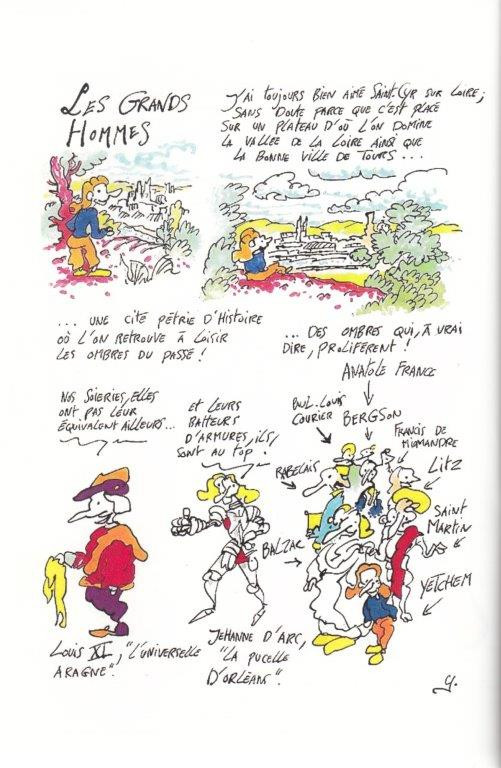 LES GRANDS
HOMMES
J'AI TOUJOURS BIEN AIMÉ SAINT-CYR SUR LOIRE;
SANS DOUTE PARCE QUE C'EST PLACÉ
SUR UN PLATEAU D'OÙ L'ON DOMINE
LA VALLÉE DE LA LOIRE AINSI QUE
LA BONNE VILLE DE TOURS ...
... UNE CITÉ PÉTRIE D'HISTOIRE
OÙ L'ON RETROUVE À LOISIR
LES OMBRES DU PASSÉ !
... DES OMBRES QUI, À VRAI
DIRE, PROLIFÈRENT !
NOS SOIERIES, ELLES
ONT PAS LEUR
ÉQUIVALENT AILLEURS...
ET LEURS
BATTEURS
D'ARMURES, ILS
SONT AU TOP !
ANATOLE FRANCE
PAUL-LOUIS
COURIER
BERGSON
FRANCIS DE
MIOMANDRE
RABELAIS
LITZ
BALZAC
SAINT
MARTIN
YETCHEM
LOUIS XI, "L'UNIVERSELLE
ARAGNE".
JEHANNE D'ARC,
"LA PUCELLE
D'ORLÉANS".
Y.